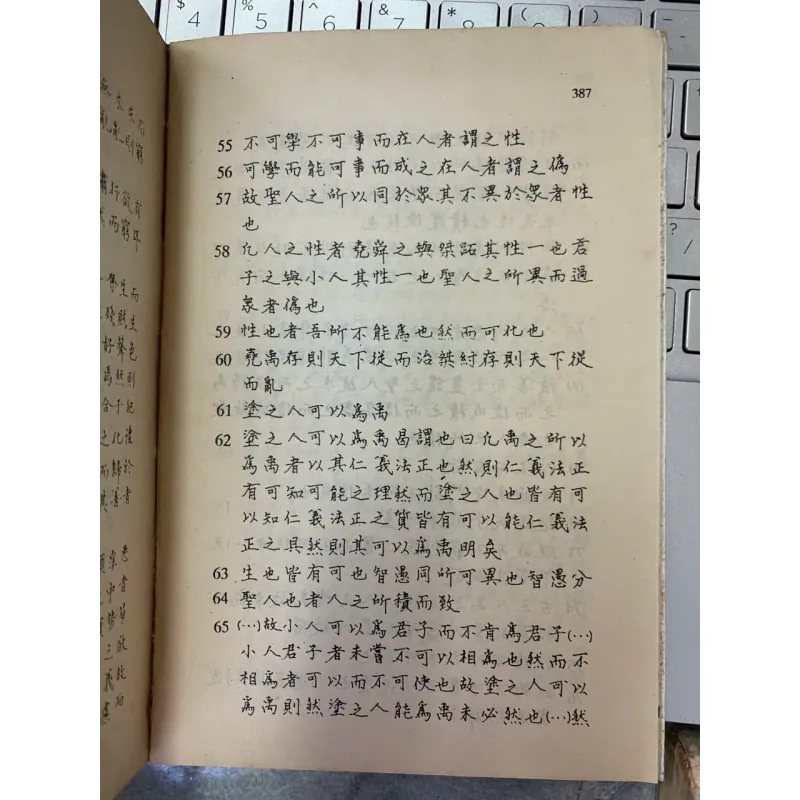 387
55 不可學不可事而在人者謂之性
56 可學而能可事而成之在人者謂之僞
57 故聖人之所以同於衆其不異於衆者性
也
58 凢人之性者堯舜之與桀跖其性一也君
子之與小人其性一也聖人之所異而過
衆者僞也
59 性也者吾所不能爲也然而可化也
60 堯禹存則天下從而治桀紂存則天下從
而亂
61 塗之人可以爲禹
62 塗之人可以爲禹曷謂也曰凢禹之所以
爲禹者以其仁義法正也然則仁義法正
有可知可能之理然而塗之人也皆有可
以知仁義法正之質皆有可以能仁義法
正之具然則其可以爲禹明矣
63 生也皆有可也智愚同所可異也智愚分
64 聖人也者人之所積而致
65 (…)故小人可以爲君子而不肯爲君子(…)
小人君子者未嘗不可以相爲也然而不
相爲者可以而不可使也故塗之人可以
爲禹則然塗之人能爲禹未必然也(…)然
$ 4
% 5
^ 6
& 7
* 8
9